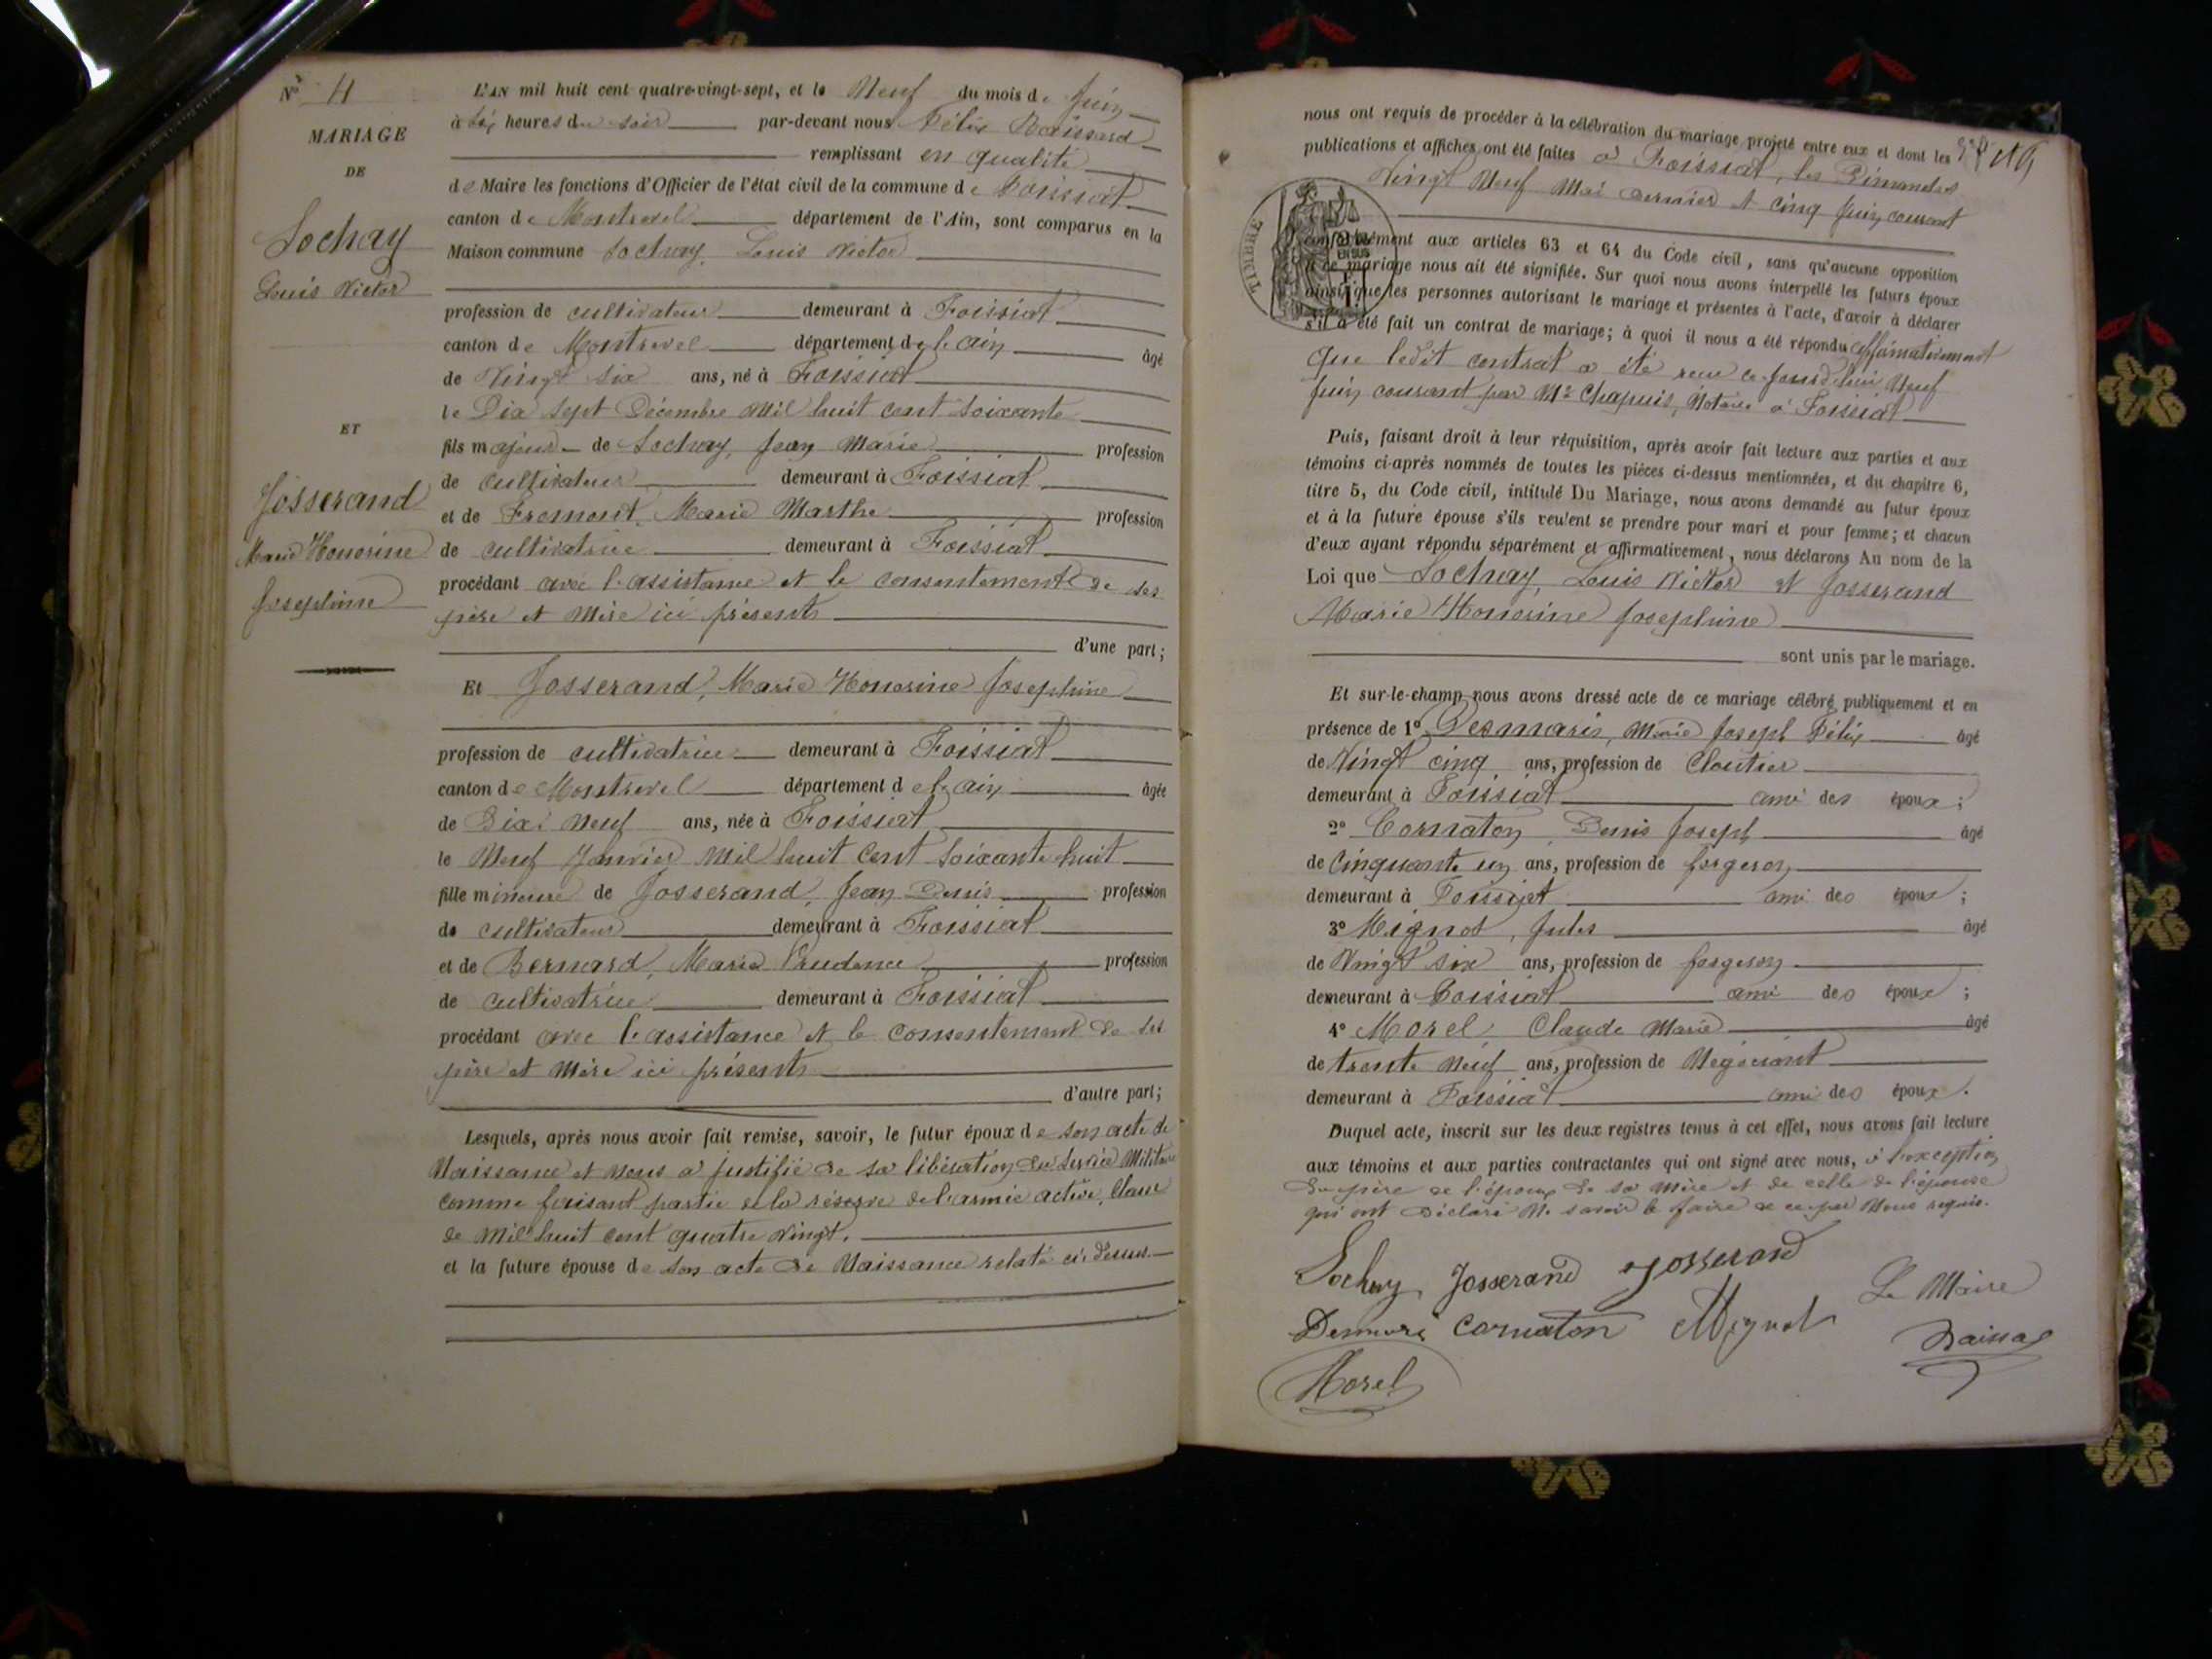 N° 11
MARIAGE
DE
Sochay
Louis Victor
ET
Josserand
Marie Honorine
Josephine
L'AN mil huit cent quatre-vingt-sept, et le Neuf du mois de Juin
à six heures du soir par-devant nous Félix
remplissant en qualité
de Maire les fonctions d'Officier de l'état civil de la commune de Foissiat
canton de Montrevel département de l'Ain, sont comparus en la
Maison commune Sochay, Louis Victor
profession de cultivateur demeurant à Foissiat
canton de Montrevel département de l'ain âgé
de Vingt six ans, né à Foissiat
le Dix sept Décembre Mil huit cent soixante
fils majeur de Sochay, Jean Marie profession
de cultivateur demeurant à Foissiat
et de Fromont, Marie Marthe profession
de cultivatrice demeurant à Foissiat
procédant avec l'assistance et le consentement de ses
père et Mère ici présents
d'une part;
Et Josserand, Marie Honorine Josephine
profession de cultivatrice demeurant à Foissiat
canton de Montrevel département de l'ain âgée
de Dix Neuf ans, née à Foissiat
le Neuf Janvier Mil huit Cent soixante huit
fille mineure de Josserand, Jean Denis profession
de cultivateur demeurant à Foissiat
et de Bernard, Marie Prudence profession
de cultivatrice demeurant à Foissiat
procédant avec l'assistance et le consentement de ses
père et Mère ici présents
d'autre part;
Lesquels, après nous avoir fait remise, savoir, le futur époux de son acte de
Naissance et Nous a justifié de sa libération du service Militaire
comme faisant partie de la réserve de l'armée active, Classe
de Mil huit cent quatre Vingt.
et la future épouse de son acte de Naissance relaté ci-dessus.
nous ont requis de procéder à la célébration du mariage projeté entre eux et dont les
publications et affiches ont été faites à Foissiat, les Dimanches
Vingt Neuf Mai dernier et cinq Juin courant
TIMBRE
conformément aux articles 63 et 64 du Code civil, sans qu'aucune opposition
à ce mariage nous ait été signifiée. Sur quoi nous avons interpellé les futurs époux
ainsi que les personnes autorisant le mariage et présentes à l'acte, d'avoir à déclarer
s'il a été fait un contrat de mariage; à quoi il nous a été répondu affirmativement
que ledit contrat a été reçu ce jourd'hui Neuf
Juin courant par Me Chapuis, Notaire à Foissiat
Puis, faisant droit à leur réquisition, après avoir fait lecture aux parties et aux
témoins ci-après nommés de toutes les pièces ci-dessus mentionnées, et du chapitre 6,
titre 5, du Code civil, intitulé Du Mariage, nous avons demandé au futur époux
et à la future épouse s'ils veulent se prendre pour mari et pour femme; et chacun
d'eux ayant répondu séparément et affirmativement, nous déclarons Au nom de la
Loi que Sochay, Louis Victor et Josserand
Marie Honorine Josephine
sont unis par le mariage.
Et sur-le-champ nous avons dressé acte de ce mariage célébré publiquement et en
présence de 1° Desmaris, Marie Joseph Félix âgé
de Vingt cinq ans, profession de Cloutier
demeurant à Foissiat ami des époux;
2° Cornaton, Denis Joseph âgé
de Cinquante un ans, profession de forgeron
demeurant à Foissiat ami des époux;
3° Mignot, Jules âgé
de Vingt six ans, profession de forgeron
demeurant à Foissiat ami des époux;
4° Morel Claude Marie âgé
de trente Neuf ans, profession de Négociant
demeurant à Foissiat ami des époux.
Duquel acte, inscrit sur les deux registres tenus à cet effet, nous avons fait lecture
aux témoins et aux parties contractantes qui ont signé avec nous, à l'exception
du père de l'époux de sa mère et de celle de l'épouse
qui ont déclaré Ne savoir le faire de ce par Nous requis.
Sochay Josserand Josserand
Desmaris Cornaton Mignot Le Maire
Morel